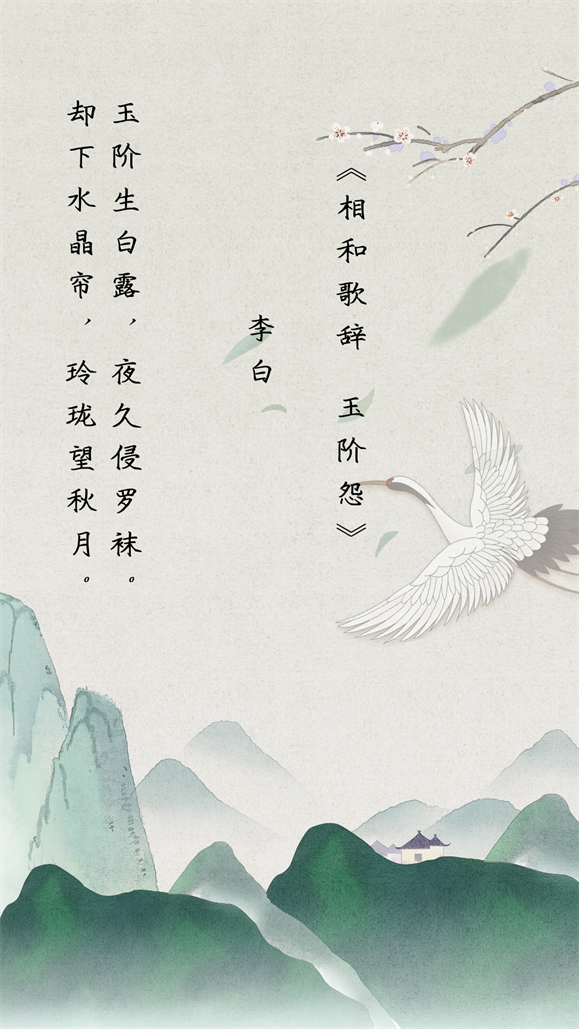 《相和歌辞 玉阶怨》
李白
玉阶生白露，夜久侵罗袜。
却下水晶帘，玲珑望秋月。